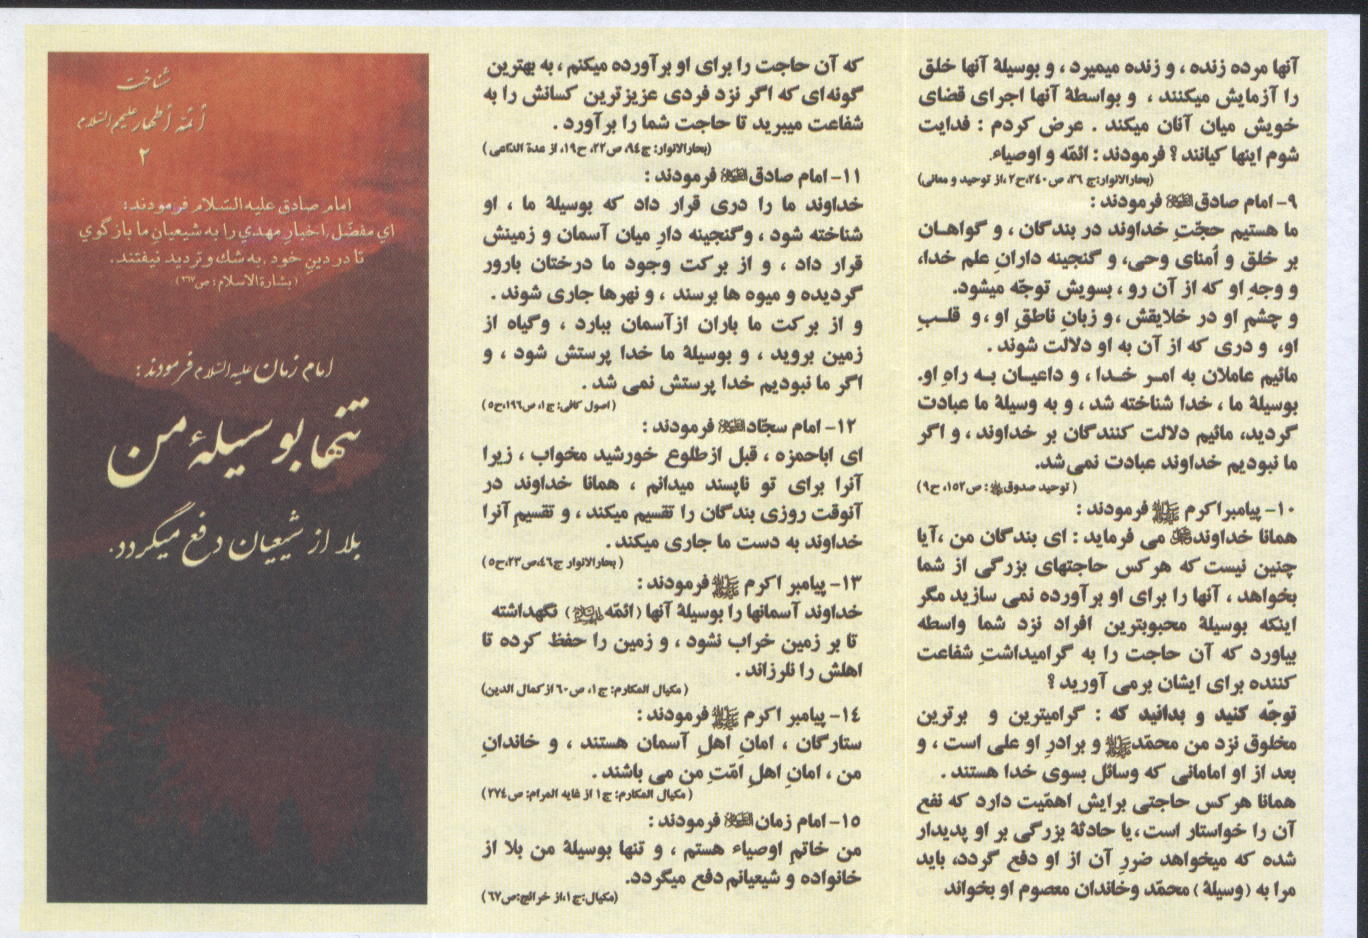 آنها مرده زنده ، و زنده میمیرد ، و بوسیلهٔ آنها خلق
را آزمایش میکنند ، و بواسطهٔ آنها اجرای قضای
خویش میان آنان میکند . عرض کردم : فدایت
شوم اینها کیانند ؟ فرمودند : ائمّه و اوصیاء.
(بحارالانوار:ج ۲۶، ص۲۴۰،ح۲ ،از توحید و معانی)
۹- امام صادق فرمودند :
ما هستیم حجّتِ خداوند در بندگان ، و گواهـان
بر خلق و اُمنای وحی، و گنجینه دارانِ علم خدا،
و وجهِ او که از آن رو ، بسویش توجّه میشود.
و چشمِ او در خلایقش ، و زبانِ ناطقِ او ،و قلبِ
او، و دری که از آن به او دلالت شوند .
مائیم عاملان به امـر خـدا ، و داعیـان بـه راهِ او.
بوسیلهٔ ما ، خدا شناخته شد ، و به وسیلهٔ ما عبادت
گردید، مائیم دلالت کنندگان بر خداوند ، و اگر
ما نبودیم خداوند عبادت نمی‌شد.
( توحید صدوق : ص۱۵۲، ح۹)
۱۰- پیامبراکرم ﷺ فرمودند :
همانا خداوند می فرماید : ای بندگان من ،آیا
چنین نیست که هرکس حاجتهای بزرگی از شما
بخواهد ، آنها را برای او برآورده نمی سازید مگر
اینکه بوسیلهٔ محبوبترین افراد نزد شما واسطه
بیاورد که آن حاجت را به گرامیداشتِ شفاعت
کننده برای ایشان برمی آورید ؟
توجّه کنید و بدانید که : گرامیترین و برترین
مخلوق نزد من محمّدﷺ و برادرِ او علی است ، و
بعد از او امامانی که وسائل بسوی خدا هستند .
همانا هرکس حاجتی برایش اهمّیت دارد که نفع
آن را خواستار است،یا حادثهٔ بزرگی بر او پدیدار
شده که میخواهد ضررِ آن از او دفع گردد، باید
مرا به (وسیلهٔ ) محمّد وخاندان معصوم او بخواند
که آن حاجت را برای او برآورده میکنم ، به بهترین
گونه‌ای که اگر نزد فردی عزیزترین کسانش را به
شفاعت میبرید تا حاجت شما را برآورد .
(بحارالانوار: ج۹۴، ص۲۲، ح۱۹، از عدة الدّاعی )
۱۱- امام صادق فرمودند :
خداوند ما را دری قرار داد که بوسیلهٔ ما ، او
شناخته شود ، وگنجینه دارِ میان آسمان و زمینش
قرار داد ، و از برکت وجود ما درختان بارور
گردیده و میوه ها برسند ، و نهرها جاری شوند .
و از برکت ما باران ازآسمان ببارد ، وگیاه از
زمین بروید ، و بوسیلهٔ ما خدا پرستش شود ، و
اگر ما نبودیم خدا پرستش نمی شد .
( اصول کافی: ج۱، ص۱۹۶،ح۵)
۱۲- امام سجّاد فرمودند :
ای اباحمزه ، قبل ازطلوع خورشید مخواب ، زیرا
آنرا برای تو ناپسند میدانم ، همانا خداوند در
آنوقت روزی بندگان را تقسیم میکند ، و تقسیم آنرا
خداوند به دست ما جاری میکند .
( بحارالانوار ج۴۶،ص۲۳،ح۵)
۱۳- پیامبر اکرم ﷺ فرمودند :
خداوند آسمانها را بوسیلهٔ آنها (ائمّه ) نگهداشته
تا بر زمین خراب نشود ، و زمین را حفظ کرده تا
اهلش را نلرزاند .
( مکیال المکارم: ج۱، ص۶۰ از کمال الدین)
۱۴- پیامبر اکرم ﷺ فرمودند :
ستارگان ، امانِ اهلِ آسمان هستند ، و خاندانِ
من ، امانِ اهلِ امّتِ من می باشند .
( مکیال المکارم: ج۱ از غایه المرام: ص۲۷۴)
۱۵- امام زمان فرمودند :
من خاتمِ اوصیاء هستم ، و تنها بوسیلهٔ من بلا از
خانواده و شیعیانم دفع میگردد.
(مکیال:ج۱،از خرائج:ص۶۷)
شناخت
أئمّه أطهار علیهم السّلام
۲
امام صادق علیه السّلام فرمودند:
اي مفضّل، اخبارِ مهدي را به شیعیانِ ما بازگوي
تا در دینِ خود، به شك و تردید نیفتند.
(بشارة الاسلام : ص۲۶۷)
امام زمان علیه السّلام فرمودند :
تنها بوسیلهٔ من
بلا از شیعیان دفع میگردد.